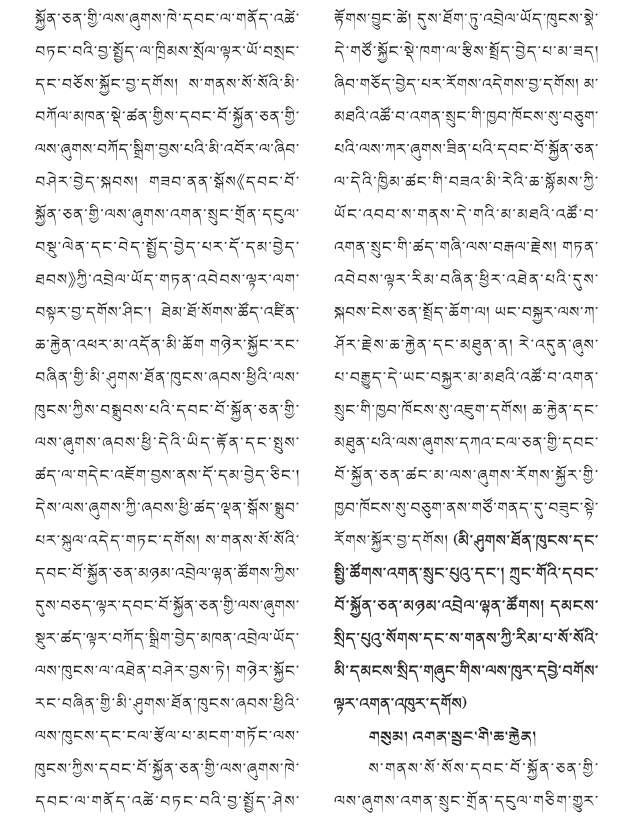 སྐྱོན་ཅན་གྱི་ལས་ཞུགས་ཁེ་དབང་ལ་གནོད་འཚེ་
བཏང་བའི་བྱ་སྤྱོད་ལ་ཁྲིམས་སྲོལ་ལྟར་ཡོ་བསྲང་
དང་བཅོས་སྐྱོང་བྱ་དགོས། ས་གནས་སོ་སོའི་མི་
བཀོལ་མཁན་སྡེ་ཚན་གྱིས་དབང་པོ་སྐྱོན་ཅན་གྱི་
ལས་ཞུགས་བཀོད་སྒྲིག་བྱས་པའི་མི་འབོར་ལ་ཞིབ་
བཤེར་བྱེད་སྐབས། གཟབ་ནན་སྒོས《དབང་པོ་
སྐྱོན་ཅན་གྱི་ལས་ཞུགས་འགན་སྲུང་གྲོན་དངུལ་
བསྡུ་ལེན་དང་བེད་སྤྱོད་བྱེད་པར་དོ་དམ་བྱེད་
ཐབས》ཀྱི་འབྲེལ་ཡོད་གཏན་འབེབས་ལྟར་ལག་
བསྟར་བྱ་དགོས་ཤིང་། ཐེམ་ཐོ་སོགས་ཚོད་འཛིན་
ཆ་རྐྱེན་འཕར་མ་འདོན་མི་ཆོག གཉེར་སྐྱོང་རང་
བཞིན་གྱི་མི་ཤུགས་ཐོན་ཁུངས་ཞབས་ཕྱིའི་ལས་
ཁུངས་ཀྱིས་བསྒྲུབས་པའི་དབང་པོ་སྐྱོན་ཅན་གྱི་
ལས་ཞུགས་ཞབས་ཕྱི་དེའི་ཡིད་རྟོན་དང་སྤུས་
ཚད་ལ་གདེང་འཇོག་བྱས་ནས་དོ་དམ་བྱེད་ཅིང་།
དེས་ལས་ཞུགས་ཀྱི་ཞབས་ཕྱི་ཚད་ལྡན་སྒོས་སྒྲུབ་
པར་སྐུལ་འདེད་གཏང་དགོས། ས་གནས་སོ་སོའི་
དབང་པོ་སྐྱོན་ཅན་མཉམ་འབྲེལ་ལྷན་ཚོགས་ཀྱིས་
དུས་བཅད་ལྟར་དབང་པོ་སྐྱོན་ཅན་གྱི་ལས་ཞུགས་
སྡུར་ཚད་ལྟར་བཀོད་སྒྲིག་བྱེད་མཁན་འབྲེལ་ཡོད་
ལས་ཁུངས་ལ་འཐེན་བཤེར་བྱས་ཏེ། གཉེར་སྐྱོང་
རང་བཞིན་གྱི་མི་ཤུགས་ཐོན་ཁུངས་ཞབས་ཕྱིའི་
ལས་ཁུངས་དང་ངལ་རྩོལ་པ་མངག་གཏོང་ལས་
ཁུངས་ཀྱིས་དབང་པོ་སྐྱོན་ཅན་གྱི་ལས་ཞུགས་ཁེ་
དབང་ལ་གནོད་འཚེ་བཏང་བའི་བྱ་སྤྱོད་ཤེས་
རྟོགས་བྱུང་ཚེ། དུས་ཐོག་ཏུ་འབྲེལ་ཡོད་ཁུངས་སྡེ་
དེ་གཙོ་སྐྱོང་སྡེ་ཁག་ལ་རྩིས་སྤྲོད་བྱེད་པ་མ་ཟད།
ཞིབ་གཅོད་བྱེད་པར་རོགས་འདེགས་བྱ་དགོས། མ་
མཐའི་འཚོ་བ་འགན་སྲུང་གི་ཁྱབ་ཁོངས་སུ་བཅུག་
པའི་ལས་ཀར་ཞུགས་ཟིན་པའི་དབང་པོ་སྐྱོན་ཅན་
ལ་དེའི་ཁྱིམ་ཚང་གི་བཟའ་མི་རེའི་ཆ་སྙོམས་ཀྱི་
ཡོང་འབབ་ས་གནས་དེ་གའི་མ་མཐའི་འཚོ་བ་
འགན་སྲུང་གི་ཚད་གཞི་ལས་བརྒལ་རྗེས། གཏན་
འབེབས་ལྟར་རིམ་བཞིན་ཕྱིར་འཐེན་པའི་དུས་
སྐབས་ངེས་ཅན་སྤྲོད་ཆོག་ལ། ཡང་བསྐྱར་ལས་ཀ་
ཤོར་རྗེས་ཆ་རྐྱེན་དང་མཐུན་ན། རེ་འདུན་ཞུས་
པ་བརྒྱུད་དེ་ཡང་བསྐྱར་མ་མཐའི་འཚོ་བ་འགན་
སྲུང་གི་ཁྱབ་ཁོངས་སུ་འཇུག་དགོས། ཆ་རྐྱེན་དང་
མཐུན་པའི་ལས་ཞུགས་དཀའ་ངལ་ཅན་གྱི་དབང་
པོ་སྐྱོན་ཅན་ཚང་མ་ལས་ཞུགས་རོགས་སྐྱོར་གྱི་
ཁྱབ་ཁོངས་སུ་བཅུག་ནས་གཙོ་གནད་དུ་བཟུང་སྟེ་
རོགས་སྐྱོར་བྱ་དགོས། (མི་ཤུགས་ཐོན་ཁུངས་དང་
སྤྱི་ཚོགས་འགན་སྲུང་པུའུ་དང་། ཀྲུང་གོའི་དབང་
པོ་སྐྱོན་ཅན་མཉམ་འབྲེལ་ལྷན་ཚོགས། དམངས་
སྲིད་པུའུ་སོགས་དང་ས་གནས་ཀྱི་རིམ་པ་སོ་སོའི་
མི་དམངས་སྲིད་གཞུང་གིས་ལས་ཁུར་དབྱེ་བགོས་
ལྟར་འགན་འཁུར་དགོས)
གསུམ། འགན་སྲུང་གི་ཆ་རྐྱེན།
ས་གནས་སོ་སོས་དབང་པོ་སྐྱོན་ཅན་གྱི་
ལས་ཞུགས་འགན་སྲུང་གྲོན་དངུལ་གཅིག་གྱུར་